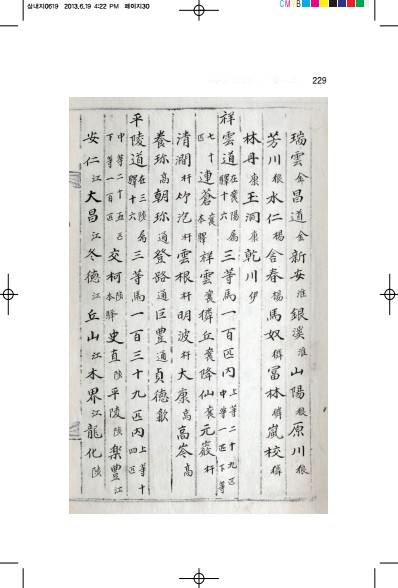 삼내지0619 2013.6.19 4:22 PM 페이지30
CMYB
229
瑞雲 金 昌道 金 新安 淮 銀溪 淮 山陽 狼 原川 狼
芳川 狼 水仁 楊 含春 楊 馬奴 獜 冨林 獜 嵐校 獜
林丹 康 王洞 康 乾川 伊
祥雲道 在襄陽属驛十六 三等馬一百匹內 上等二十九匹中等一匹下等
七十匹 連蒼 襄本驛 祥雲 襄 獜丘 襄 降仙 襄 元巖 杆
清澗 杆 竹泡 杆 雲根 杆 明波 杆 大康 高 高岑 高
養珎 高 朝珎 通 登路 通 巨豊 通 貞德 歙
平陵道 在三陟属驛十六 三等馬一百三十九匹內 上等十四匹
中等二十五匹下等一百匹 交柯 陟本驛 史直 陟 平陵 陟 樂豊 江
安仁 江 大昌 江 冬德 江 丘山 江 木界 江 龍化 陟